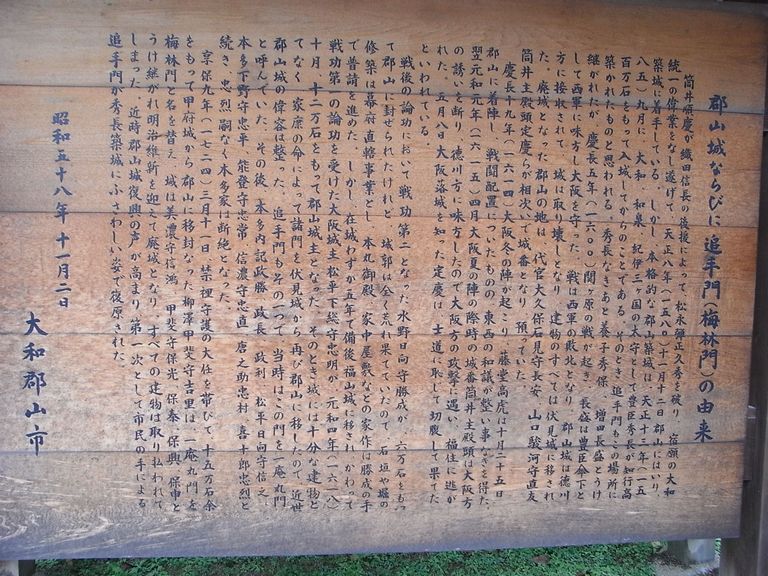 郡山城ならびに追手門(梅林門)の由来
筒井順慶が織田信長の後援によって、松永弾正久秀を破り、宿願の大和
統一の偉業をなし遂げて、天正八年(一五八〇)十一月十二日郡山にはいり
築城に着手している。しかし、本格的な郡山築城は、天正十三年(一五
八五)九月に、大和・和泉・紀伊三ヶ国の太守として豊臣秀長が知行高
百万石をもって入城してからのことである。そのとき追手門もこの場所に
築かれたものと思われる。秀長なきあと、養子秀保、増田長盛とうけ
継がれたが、慶長五年(一六〇〇)関ヶ原の戦が起き、長盛は豊臣傘下と
して西軍に味方し大阪を守った。戦は西軍の敗北となり、郡山城は徳川
方に接収されて、城は取り壊しとなり、建物のすべては伏見城に移され
た。廃城となった郡山の地は、代官大久保石見守長安、山口駿河守直友
筒井主殿頭定慶らが相次いで城番となり、預っていた。
慶長十九年(一六一四)大阪冬の陣が起こり、藤堂高虎は十月二十五日
郡山に着陣し、戦闘配置についたものの、東西の和議が整い事なきを得た。
翌元和元年(一六一五)四月大阪夏の陣の際、時の城番筒井主殿頭は大阪方
の誘いを断り、徳川方に味方したので大阪方の攻撃に遇い、福住に逃が
れた。五月八日、大阪落城を知った定慶は、士道に恥じて切腹して果てた
といわれている。
戦後の論功において、戦功第二となった水野日向守勝成が、六万石をもっ
て郡山に封ぜられたけれど、城郭は全く荒れ果てていたので、石垣や堀の
修築は幕府直轄事業とし、本丸御殿、家中屋敷などの家作は勝成の手
で普請を進めた。しかし、在城わずか五年で備後福山城に移され、かわって
戦功第一の論功を受けた大阪城主松平下総守忠明が、元和五年(一六一九)
十月、十二万石をもって郡山城主となった。そのとき城には十分な建物と
てなく、家康の命によって諸門を伏見城から再び郡山に移したので、近世
郡山城の偉容は整った。追手門もその一つで、当時はこの門を一庵丸門
と呼んでいた。その後、本多内記政勝、政長、政利、松平日向守信之、
本多下野守忠平、能登守忠常、信濃守忠直、唐之助忠村、喜十郎忠烈と
続き、忠烈嗣なく本多家は断絶となった。
享保九年(一七二四)三月十一日、禁裡守護の大任を帯びて、十五万石余
をもって甲府城から郡山に移封なった柳澤甲斐守吉里は、一庵丸門を
梅林門と名を替え、城は美濃守信鴻、甲斐守保光、保泰、保興、保申と
うけ継がれ、明治維新を迎えて廃城となり、すべての建物は取り払われて
しまった。近時郡山城復興の声が高まり、第一次として市民の手による
追手門が秀長築城にふさわしい姿で復原された。
昭和五十八年 十一月二日
大和郡山市